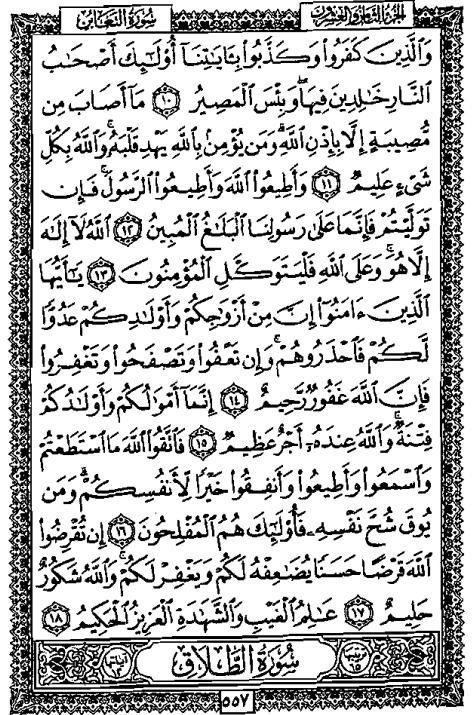 سُورَةُ التَّغَابُنِ
الجُزْءُ الثَّامِنُ وَالعِشْرُونَ
وَالَّذِينَ كَفَرُوا۟ وَكَذَّبُوا۟ بِـَٔايَـٰتِنَآ أُو۟لَـٰٓئِكَ أَصْحَـٰبُ
النَّارِ خَـٰلِدِينَ فِيهَا ۖ وَبِئْسَ الْمَصِيرُ ١٠ مَآ أَصَابَ مِن
مُّصِيبَةٍ إِلَّا بِإِذْنِ اللَّهِ ۗ وَمَن يُؤْمِنۢ بِاللَّهِ يَهْدِ قَلْبَهُۥ ۚ وَاللَّهُ بِكُلِّ
شَىْءٍ عَلِيمٌ ١١ وَأَطِيعُوا۟ اللَّهَ وَأَطِيعُوا۟ الرَّسُولَ ۚ فَإِن
تَوَلَّيْتُمْ فَإِنَّمَا عَلَىٰ رَسُولِنَا الْبَلَـٰغُ الْمُبِينُ ١٢ اللَّهُ لَآ إِلَـٰهَ
إِلَّا هُوَ ۚ وَعَلَى اللَّهِ فَلْيَتَوَكَّلِ الْمُؤْمِنُونَ ١٣ يَـٰٓأَيُّهَا
الَّذِينَ ءَامَنُوٓا۟ إِنَّ مِنْ أَزْوَٰجِكُمْ وَأَوْلَـٰدِكُمْ عَدُوًّا
لَّكُمْ فَاحْذَرُوهُمْ ۚ وَإِن تَعْفُوا۟ وَتَصْفَحُوا۟ وَتَغْفِرُوا۟
فَإِنَّ اللَّهَ غَفُورٌ رَّحِيمٌ ١٤ إِنَّمَآ أَمْوَٰلُكُمْ وَأَوْلَـٰدُكُمْ
فِتْنَةٌ ۚ وَاللَّهُ عِندَهُۥٓ أَجْرٌ عَظِيمٌ ١٥ فَاتَّقُوا۟ اللَّهَ مَا اسْتَطَعْتُمْ
وَاسْمَعُوا۟ وَأَطِيعُوا۟ وَأَنفِقُوا۟ خَيْرًا لِّأَنفُسِكُمْ ۗ وَمَن
يُوقَ شُحَّ نَفْسِهِۦ فَأُو۟لَـٰٓئِكَ هُمُ الْمُفْلِحُونَ ١٦ إِن تُقْرِضُوا۟
اللَّهَ قَرْضًا حَسَنًا يُضَـٰعِفْهُ لَكُمْ وَيَغْفِرْ لَكُمْ ۚ وَاللَّهُ شَكُورٌ
حَلِيمٌ ١٧ عَـٰلِمُ الْغَيْبِ وَالشَّهَـٰدَةِ الْعَزِيزُ الْحَكِيمُ ١٨
سُورَةُ الطَّلَاقِ
٥٥٧